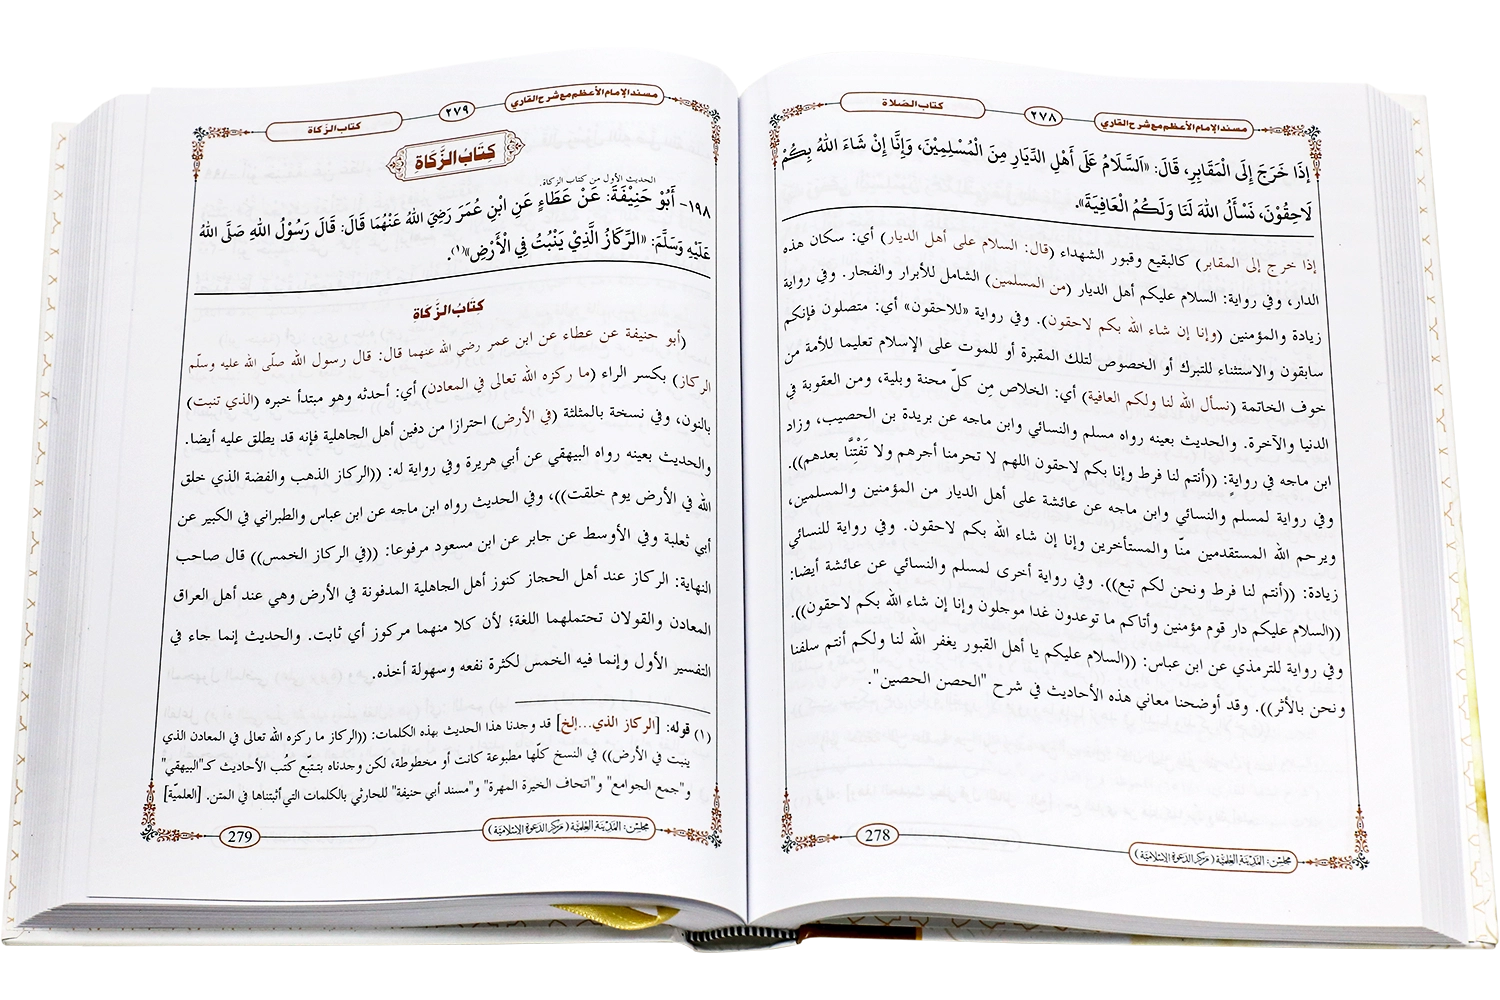 مسند الإمام الأعظم مع شرح القاري
٢٧٨
كتاب الصلاة
إِذَا خَرَجَ إِلَى الْمَقَابِرِ، قَالَ: «اَلسَّلَامُ عَلَى أَهْلِ الدِّيَارِ مِنَ الْمُسْلِمِيْنَ، وَإِنَّا إِنْ شَاءَ اللهُ بِكُمْ
لَاحِقُوْنَ، نَسْأَلُ اللهَ لَنَا وَلَكُمُ الْعَافِيَةَ».
(إذا خرج إلى المقابر) كالبقيع وقبور الشهداء (قال: السلام على أهل الديار) أي: سكان هذه
الدار، وفي رواية: السلام عليكم أهل الديار (من المسلمين) الشامل للأبرار والفجار. وفي رواية
زيادة والمؤمنين (وإنا إن شاء الله بكم لاحقون). وفي رواية «للاحقون» أي: متصلون فإنكم
سابقون والاستثناء للتبرك أو الخصوص لتلك المقبرة أو للموت على الإسلام تعليما للأمة من
خوف الخاتمة (نسأل الله لنا ولكم العافية) أي: الخلاص مِن كلّ محنة وبلية، ومن العقوبة في
الدنيا والآخرة. والحديث بعينه رواه مسلم والنسائي وابن ماجه عن بريدة بن الحصيب، وزاد
ابن ماجه في روايةٍ: ((أنتم لنا فرط وإنا بكم لاحقون اللهم لا تحرمنا أجرهم ولا تَفْتِنَّا بعدهم)).
وفي رواية لمسلم والنسائي وابن ماجه عن عائشة على أهل الديار من المؤمنين والمسلمين،
ويرحم الله المستقدمين منّا والمستأخرين وإنا إن شاء الله بكم لاحقون. وفي رواية للنسائي
زيادة: ((أنتم لنا فرط ونحن لكم تبع)). وفي رواية أخرى لمسلم والنسائي عن عائشة أيضا:
((السلام عليكم دار قوم مؤمنين وأتاكم ما توعدون غدا موجلون وإنا إن شاء الله بكم لاحقون)).
وفي رواية للترمذي عن ابن عباس: ((السلام عليكم يا أهل القبور يغفر الله لنا ولكم أنتم سلفنا
ونحن بالأثر)). وقد أوضحنا معاني هذه الأحاديث في شرح "الحصن الحصين".
مجلس: المدينة العلمية (مركز الدعوة الإسلامية)
278
مسند الإمام الأعظم مع شرح القاري
٢٧٩
كتاب الزكاة
كِتَابُ الزَّكَاةِ
الحديث الأول من كتاب الزكاة.
١٩٨- أَبُوْ حَنِيْفَةَ: عَنْ عَطَاءٍ عَنِ ابْنِ عُمَرَ رَضِيَ اللهُ عَنْهُمَا قَالَ: قَالَ رَسُوْلُ اللهِ صَلَّى اللهُ
عَلَيْهِ وَسَلَّمَ: «الرِّكَازُ الَّذِيْ يَنْبُتُ فِي الْأَرْضِ»(١).
كِتَابُ الزَّكَاةِ
(أبو حنيفة عن عطاء عن ابن عمر رضي الله عنهما قال: قال رسول الله صلّى الله عليه وسلّم
الركاز) بكسر الراء (ما ركزه الله تعالى في المعادن) أي: أحدثه وهو مبتدأ خبره (الذي تنبت)
بالنون، وفي نسخة بالمثلثة (في الأرض) احترازا من دفين أهل الجاهلية فإنه قد يطلق عليه أيضا.
والحديث بعينه رواه البيهقي عن أبي هريرة وفي رواية له: ((الركاز الذهب والفضة الذي خلق
الله في الأرض يوم خلقت))، وفي الحديث رواه ابن ماجه عن ابن عباس والطبراني في الكبير عن
أبي ثعلبة وفي الأوسط عن جابر عن ابن مسعود مرفوعا: ((في الركاز الخمس)) قال صاحب
النهاية: الركاز عند أهل الحجاز كنوز أهل الجاهلية المدفونة في الأرض وهي عند أهل العراق
المعادن والقولان تحتملهما اللغة؛ لأن كلا منهما مركوز أي ثابت. والحديث إنما جاء في
التفسير الأول وإنما فيه الخمس لكثرة نفعه وسهولة أخذه.
(١) قوله: [الركاز الذي...إلخ] قد وجدنا هذا الحديث بهذه الكلمات: ((الركاز ما ركزه الله تعالى في المعادن الذي
ينبت في الأرض)) في النسخ كلّها مطبوعة كانت أو مخطوطة، لكن وجدناه بتتبّع كتُب الأحاديث كـ"البيهقي"
و"جمع الجوامع" و"اتحاف الخيرة المهرة" و"مسند أبي حنيفة" للحارثي بالكلمات التي أثبتناها في المتن. [العلميّة]
مجلس: المدينة العلمية (مركز الدعوة الإسلامية)
279